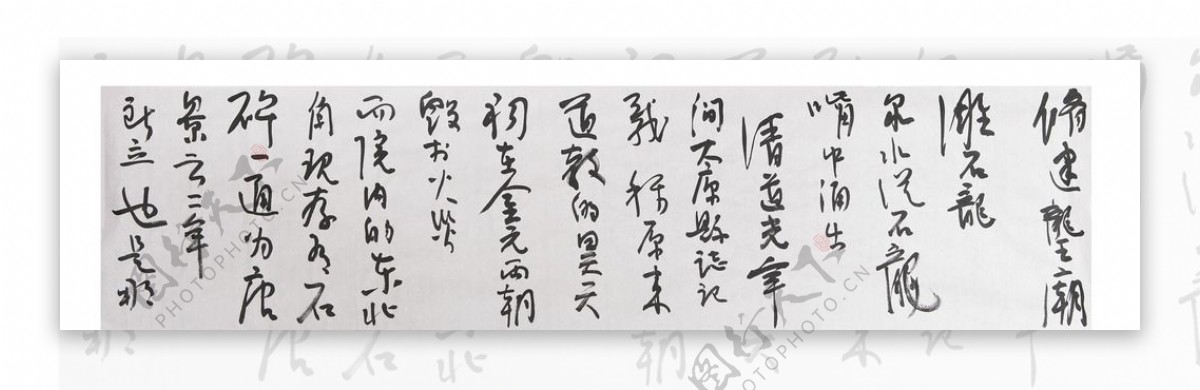 修建龍王廟
雕石龍
泉水從石龍
嘴中涌出
清道光年
間太原縣誌記
載原来
道教的昊天
祠在金元两朝
毀於火災
而院内的東北
角現存有石
碑一通為唐
景云二年
所立也是